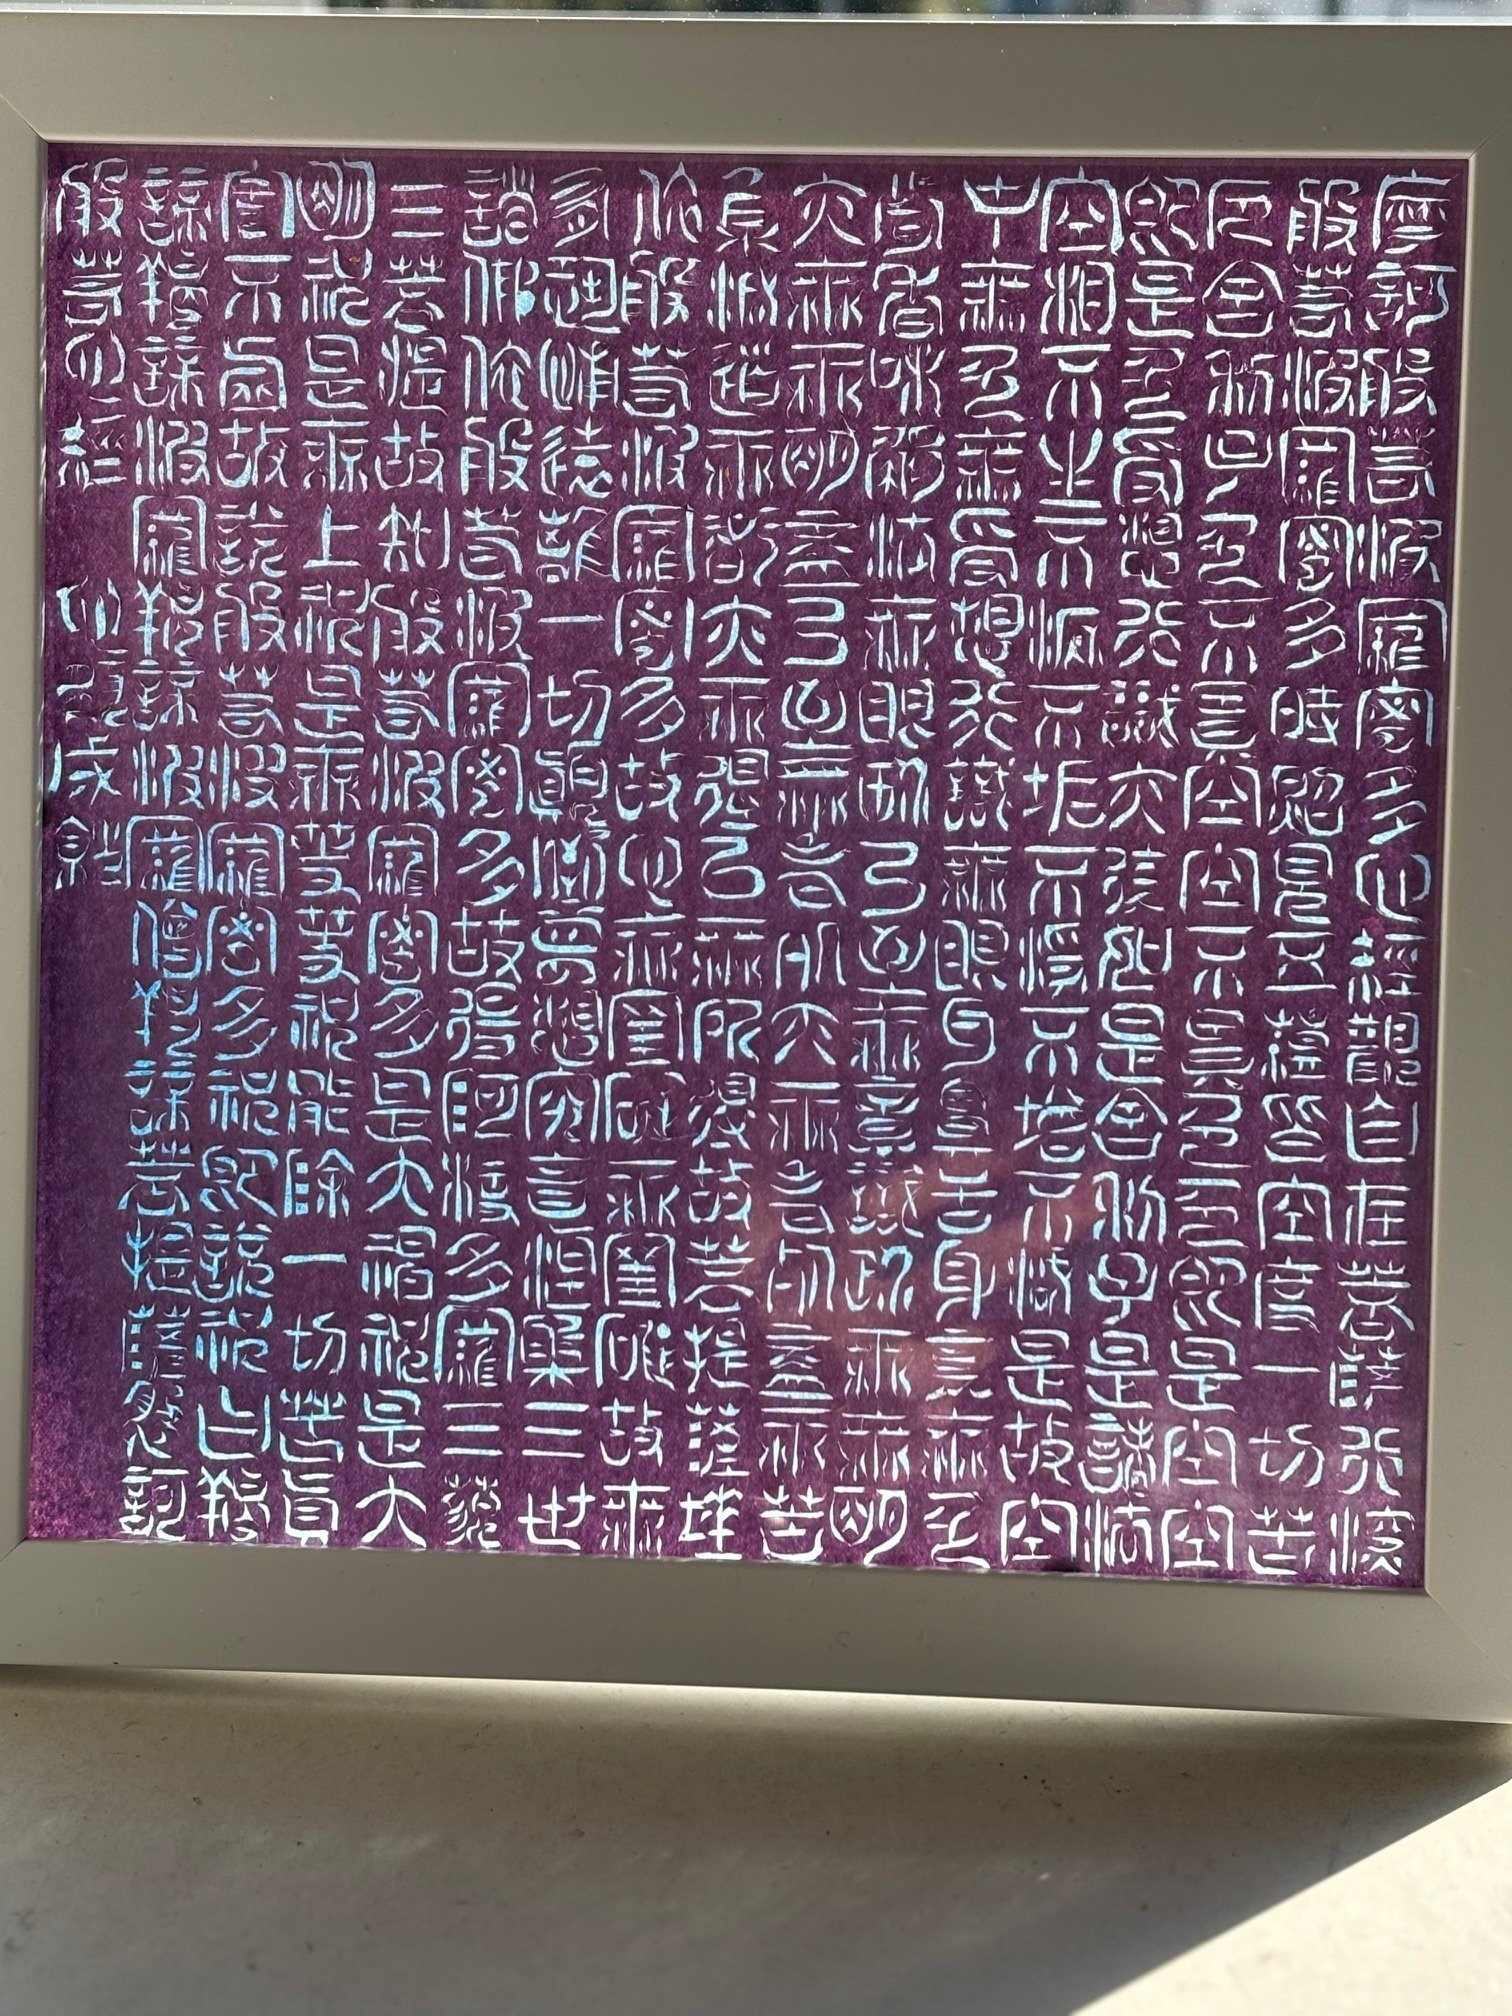 摩訶般若波羅蜜多心經觀自在菩薩行深
般若波羅蜜多時照見五蘊皆空度一切苦
厄舍利子色不異空空不異色色即是空空
即是色受想行識亦復如是舍利子是諸法
空相不生不滅不垢不淨不增不減是故空
中無色無受想行識無眼耳鼻舌身意無色
聲香味觸法無眼界乃至無意識界無無明
亦無無明盡乃至無老死亦無老死盡無苦
集滅道無智亦無得以無所得故菩提薩埵
依般若波羅蜜多故心無罣礙無罣礙故無
有恐怖遠離一切顛倒夢想究竟涅槃三世
諸佛依般若波羅蜜多故得阿耨多羅三藐
三菩提故知般若波羅蜜多是大神咒是大
明咒是無上咒是無等等咒能除一切苦真
實不虛故說般若波羅蜜多咒即說咒曰羯
諦羯諦波羅羯諦波羅僧羯諦菩提薩婆訶
般若心經